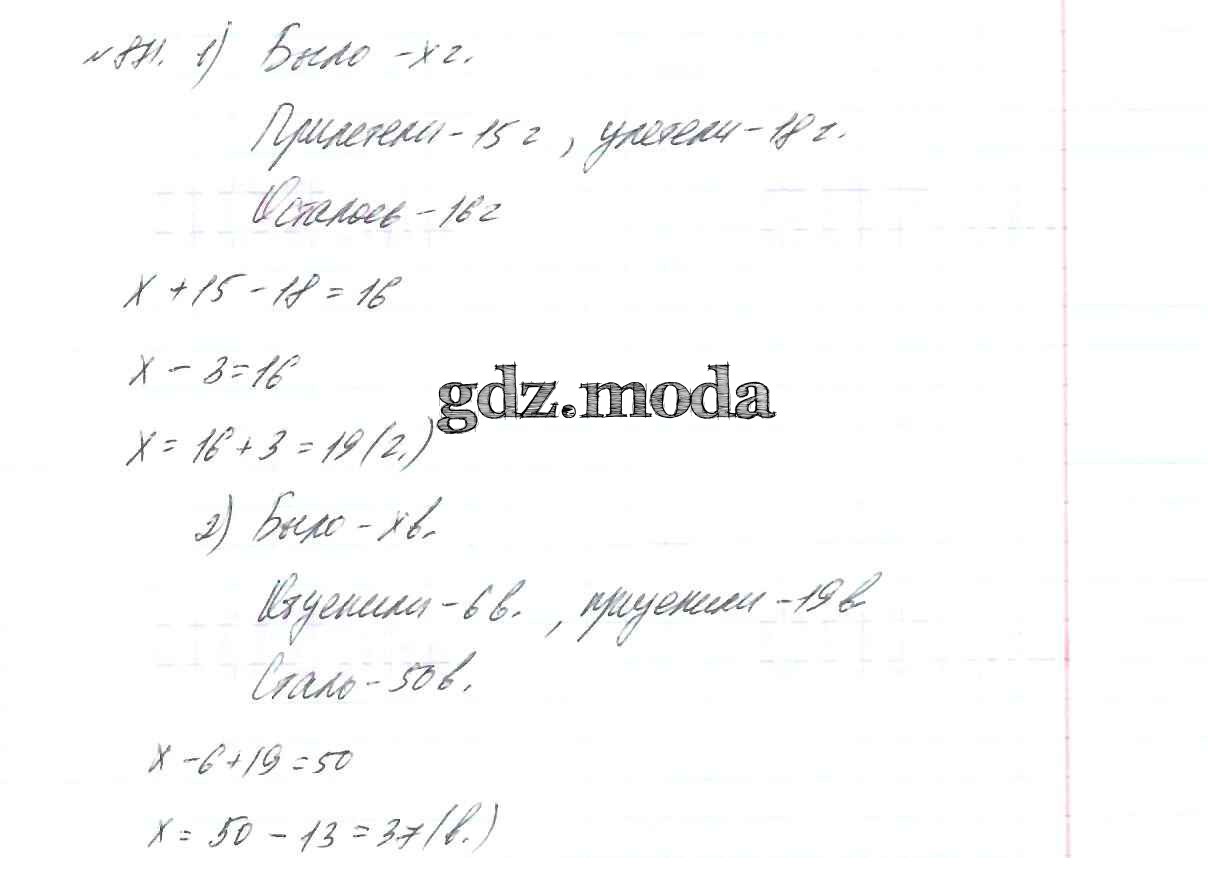 №871. 1) Было - х г.
Прилетели - 15 г, улетели - 18 г.
Осталось - 16 г
х + 15 - 18 = 16
х - 3 = 16
gdz.moda
х = 16 + 3 = 19 (г.)
2) Было - х в.
Отцепили - 6 в., прицепили - 19 в
Стало - 50 в.
х - 6 + 19 = 50
х = 50 - 13 = 37 (в.)